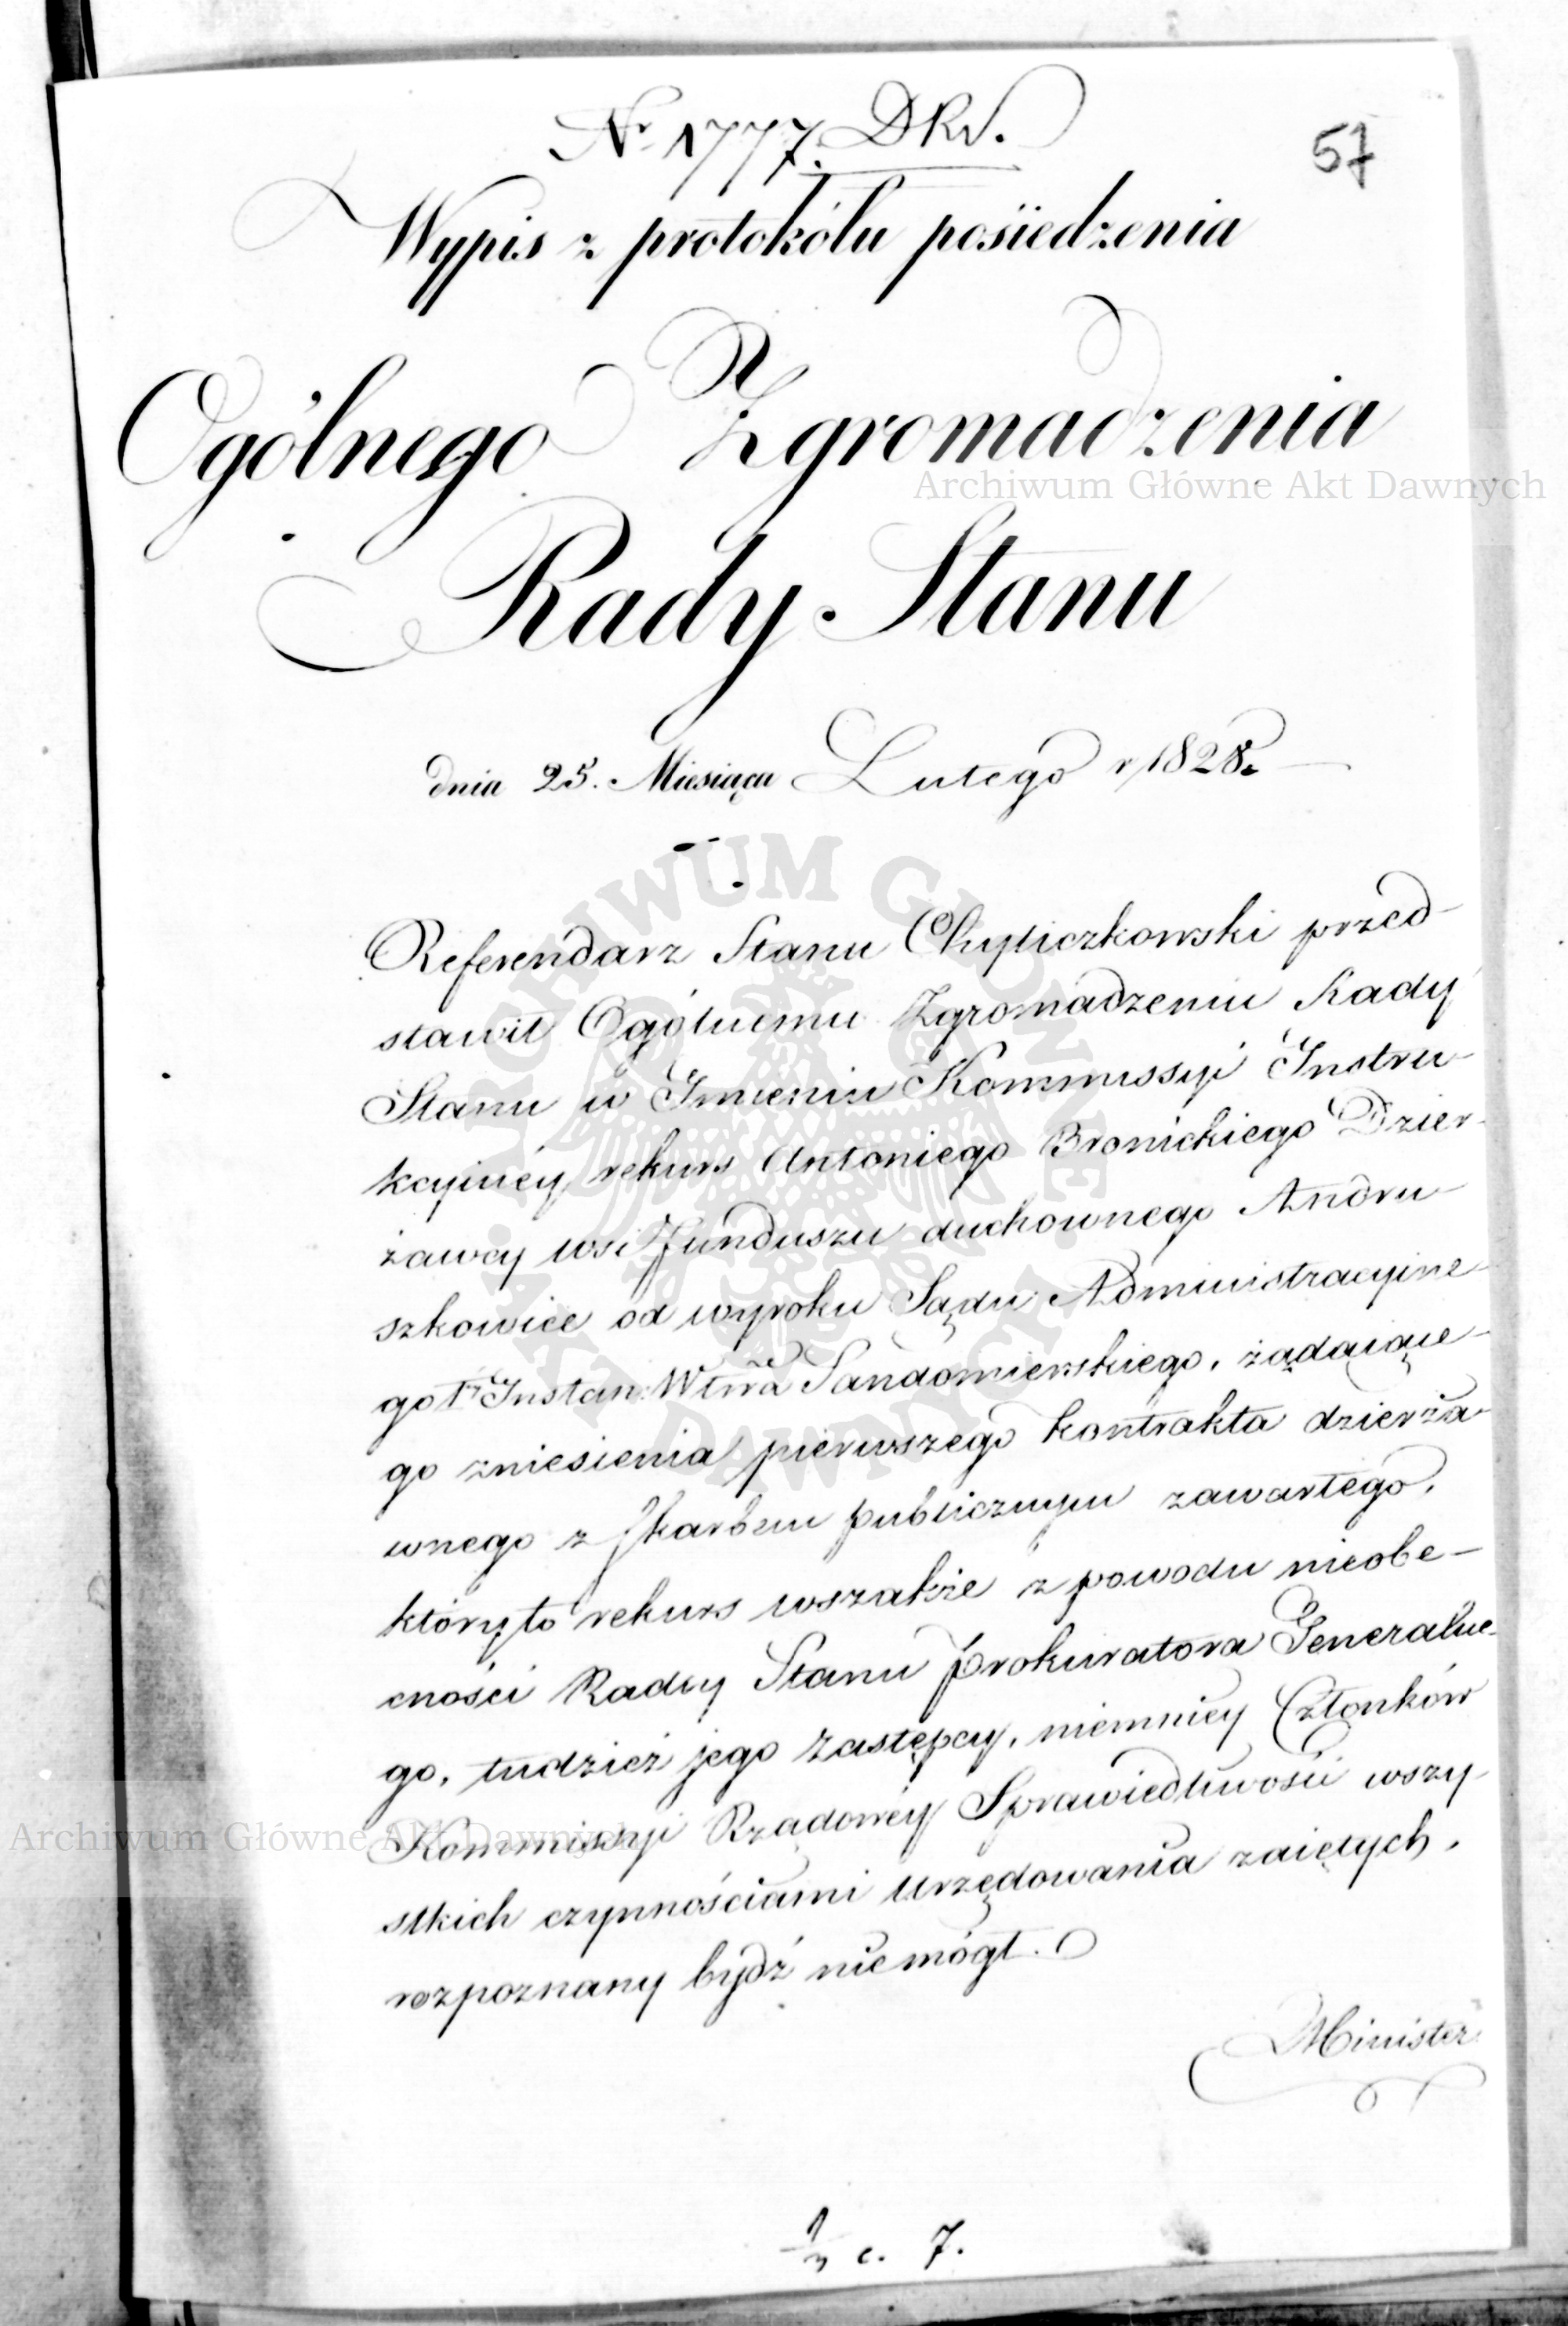 Nr 1777. DRS.
57
Wypis z protokółu posiedzenia
Ogólnego Zgromadzenia
Archiwum Główne Akt Dawnych
Rady Stanu
dnia 25. Miesiąca Lutego r 1828.
ARCHIWUM GŁÓWNE AKT DAWNYCH
Referendarz Stanu Chyliczkowski przed-
stawił Ogólnemu Zgromadzeniu Rady
Stanu w Imieniu Kommissyi Instru-
kcyinéy rekurs Antoniego Bronickiego Dzier-
żawcy wsi funduszu duchownego Andru-
szkowice od wyroku Sądu Administracyine-
go 1r Instan: Wtwa Sandomierskiego, żądaiące-
go zniesienia pierwszego kontraktu dzierża-
wnego z Skarbem publicznym zawartego,
któryto rekurs wszakże z powodu nieobe-
cności Radcy Stanu Prokuratora Generalne-
go, tudzież jego zastępcy, niemniey Członków
Kommissyi Rządowéy Sprawiedliwości wszy-
Archiwum Główne Akt Dawnych
stkich czynnościami urzędowania zaiętych,
rozpoznany bydź niemógł.
Minister
c. 7.